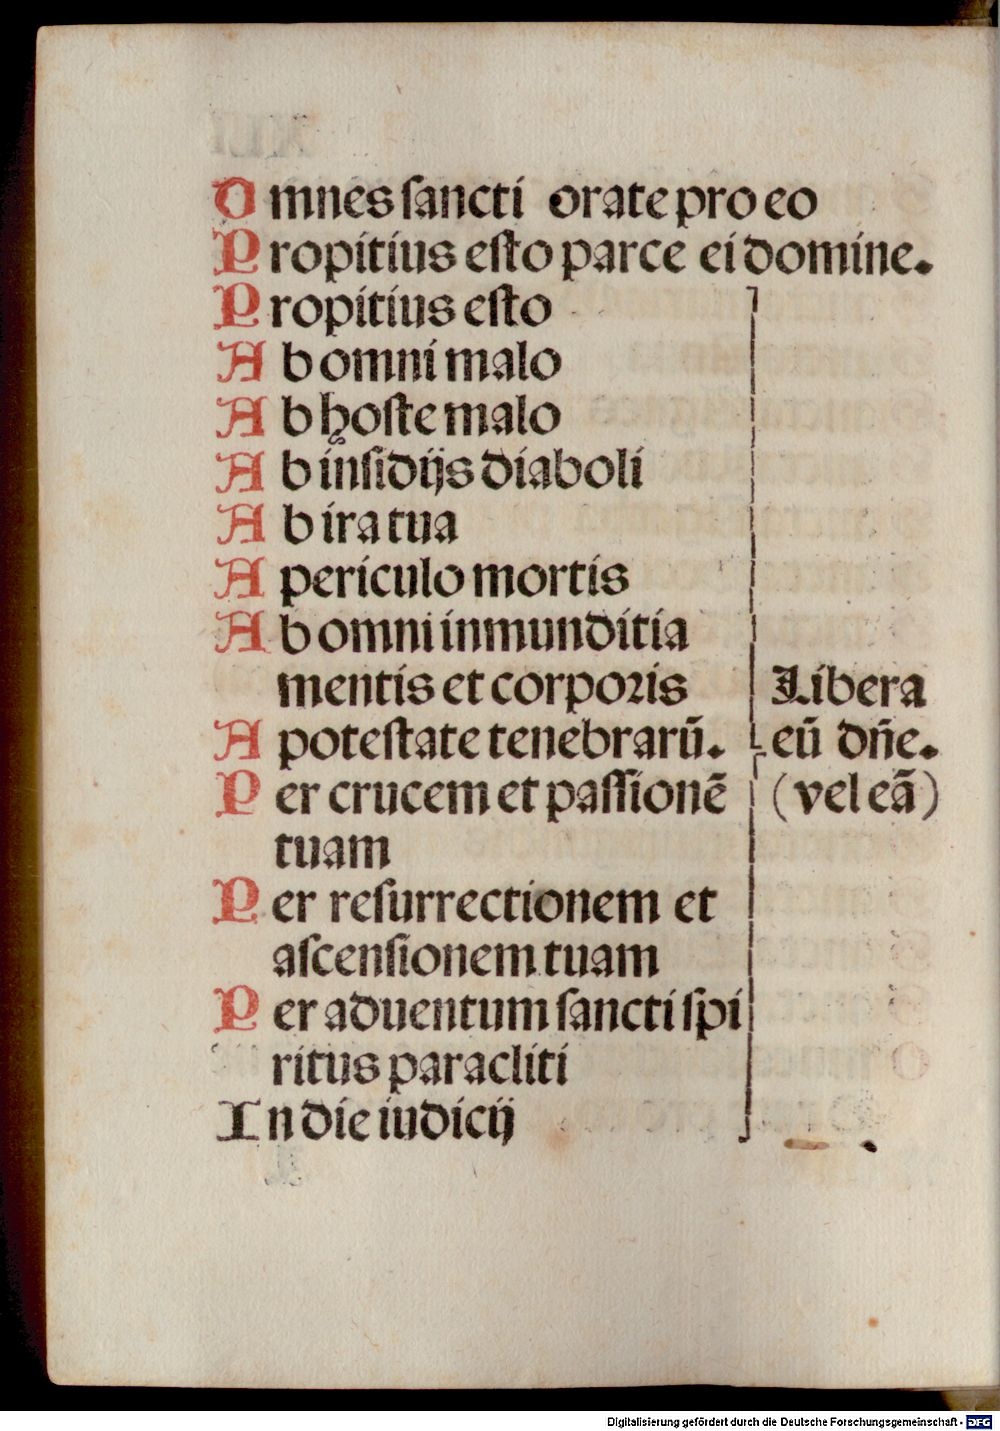 Omnes ſancti orate pro eo
Propitius eſto parce ei domine.
Propitius eſto
Ab omni malo
Ab hoſte malo
Ab inſidijs diaboli
Ab ira tua
A periculo mortis
Ab omni inmunditia
mentis et corporis Libera
A poteſtate tenebrarū. eū dn̄e.
Per crucem et paſſionē (vel eā)
tuam
Per reſurrectionem et
aſcenſionem tuam
Per aduentum ſancti ſpi
ritus paracliti
In die iudicij
Digitalisierung gefördert durch die Deutsche Forschungsgemeinschaft - DFG